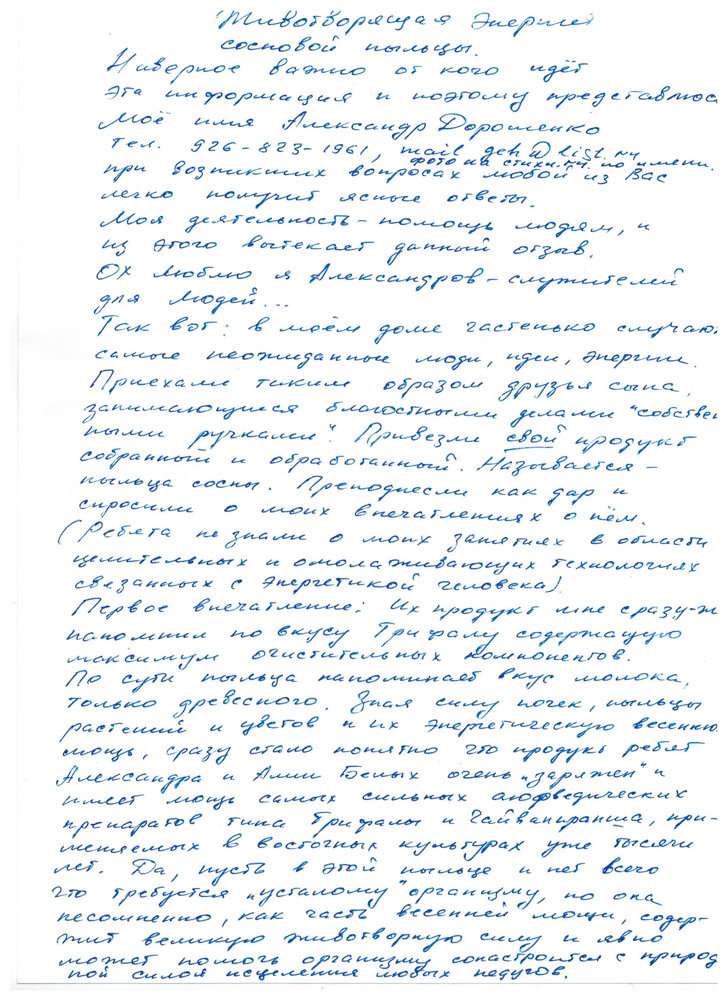 "Животворящая Энергия
сосновой пыльцы.
Наверное важно от кого идёт
эта информация и поэтому представлюсь
Моё имя Александр Дорошенко
тел. 926-823-1961, mail geh@list.ru
фото на стихи.ру. по имени.
при возникших вопросах любой из Вас
легко получит ясные ответы.
Моя деятельность - помощь людям, и
из этого вытекает данный отзыв.
Ох люблю я Александров - служителей
для людей...
Так вот: в моём доме частенько случаю
самые неожиданные люди, идеи, энергии.
Приехали таким образом друзья сына,
занимающиеся благостными делами "собствен
ными ручками". Привезли свой продукт
собранный и обработанный. Называется -
пыльца сосны. Преподнесли как дар и
спросили о моих впечатлениях о нём.
(Ребята не знали о моих занятиях в области
целительных и омолаживающих технологиях
связанных с энергетикой человека)
Первое впечатление: Их продукт мне сразу-ж
напомнил по вкусу Трифалу содержащую
максимум очистительных компонентов.
По сути пыльца напоминает вкус молока,
только древесного. Зная силу почек, пыльцы
растений и цветов и их энергетическую весенню
мощь, сразу стало понятно что продукт ребят
Александра и Алии Белых очень "заряжен" и
имеет мощь самых сильных аюрведических
препаратов типа Трифалы и Чайванпраша, при-
меняемых в восточных культурах уже тысячи
лет. Да, пусть в этой пыльце и нет всего
что требуется "усталому" организму, но она
несомненно, как часть весенней мощи, содер-
жит великую животворную силу и явно
может помочь организму сонастроится с природ
ной силой исцеления любых недугов.